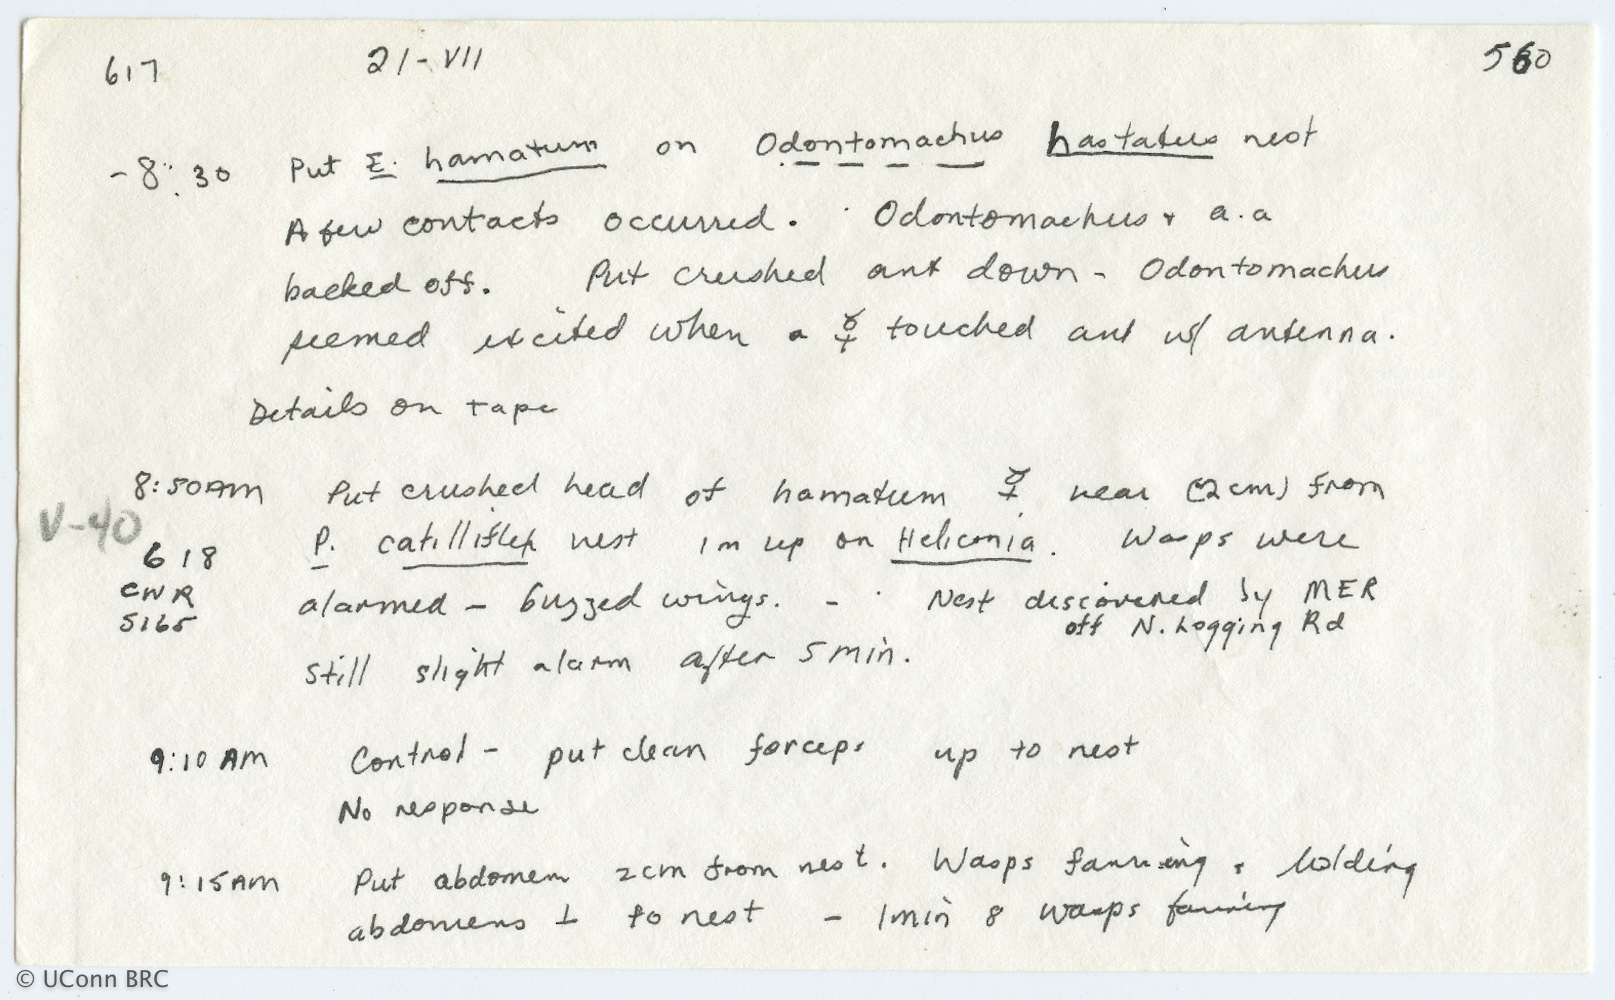 617 21-VII 560
-8:30 Put E. hamatum on Odontomachus hastatus nest
A few contacts occurred. Odontomachus + a.a
backed off. Put crushed ant down - Odontomachus
seemed excited when a ☿ touched ant w/ antenna.
Details on tape
8:50AM Put crushed head of hamatum ☿ near (2cm) from
V-40
618 P. catillifex nest 1m up on Heliconia. Wasps were
CWR alarmed - buzzed wings. - Nest discovered by MER
5165 off N. Logging Rd
Still slight alarm after 5 min.
9:10 AM Control - put clean forceps up to nest
No response
9:15AM Put abdomen 2cm from nest. Wasps fanning + holding
abdomens ⊥ to nest - 1min 8 wasps fanning
© UConn BRC